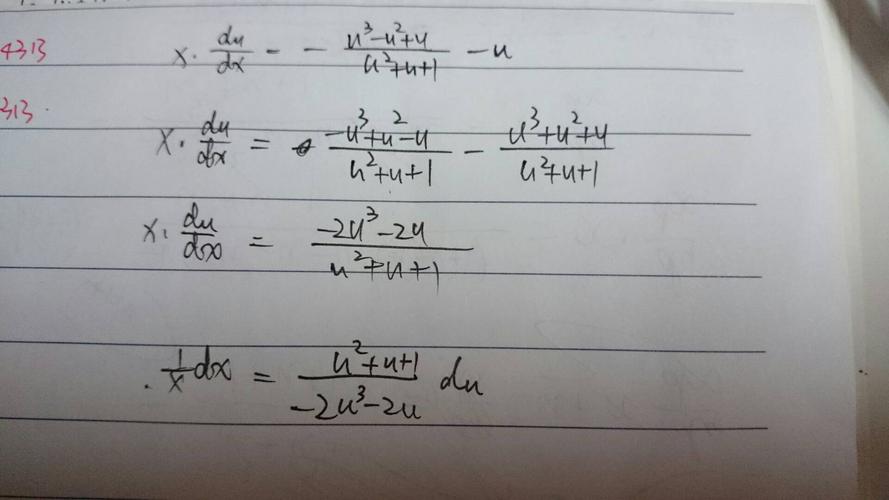 4313
x · du/dx - - (u³-u²+u)/(u²+u+1) - u
313 ·
x · du/dx = (-u³+u²-u)/(u²+u+1) - (u³+u²+u)/(u²+u+1)
x · du/dx = (-2u³-2u)/(u²+u+1)
· 1/x dx = (u²+u+1)/(-2u³-2u) du